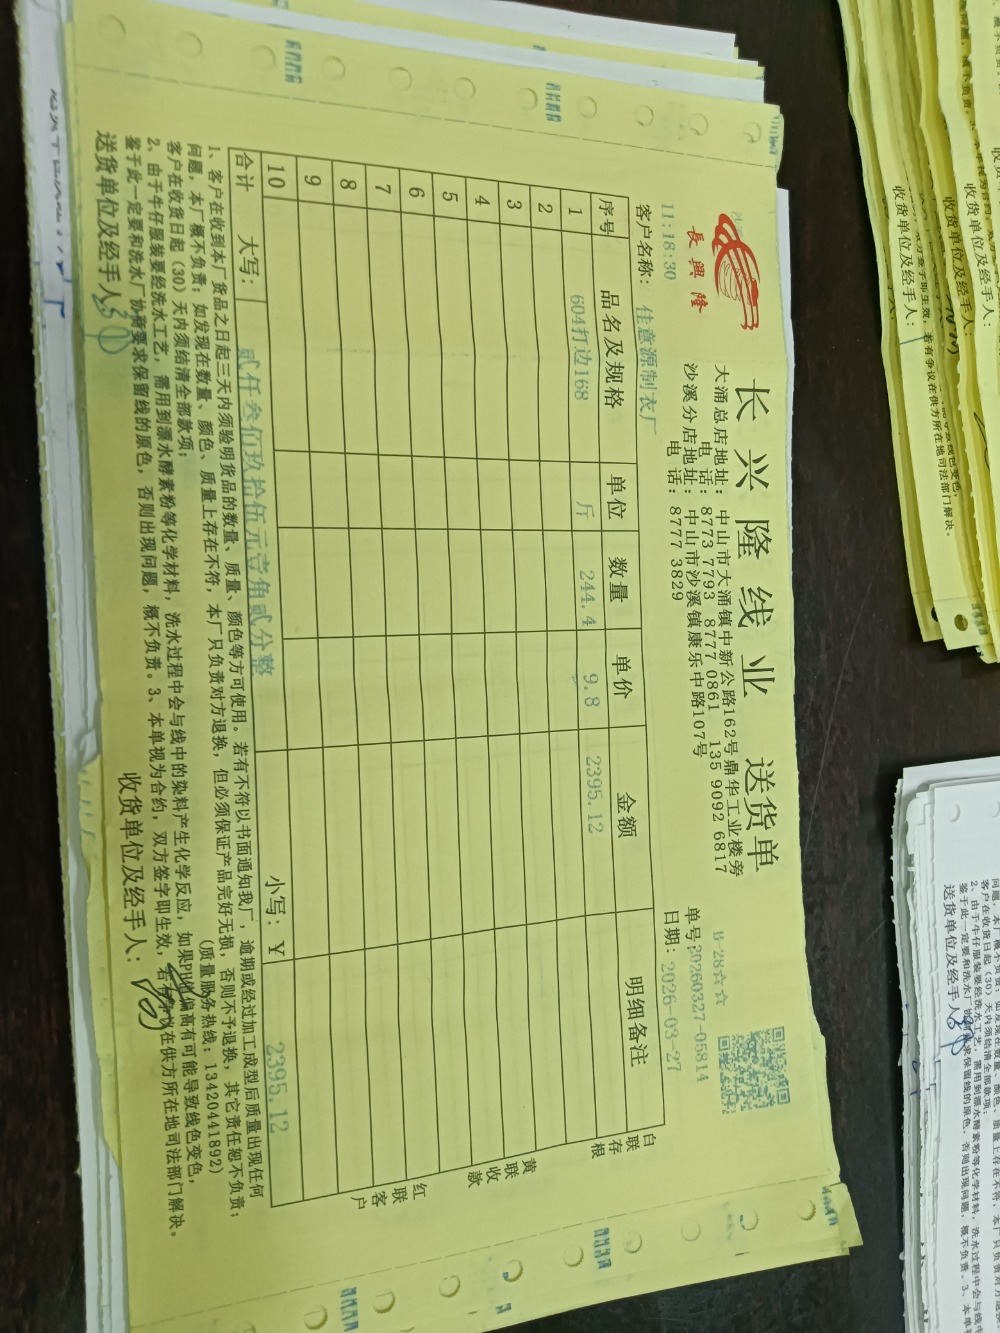 长兴隆线业 送货单
長興隆
大涌总店地址：中山市大涌镇中新公路162号鼎华工业楼旁
电话：8773 7793 8777 0861 135 9092 6817
沙溪分店地址：中山市沙溪镇康乐中路107号
电话：8777 3829
B-28☆☆
单号:20260327-05814
11:18:30
日期:2026-03-27
客户名称：佳意源制衣厂
序号 品名及规格 单位 数量 单价 金额 明细备注
1 604打边168 斤 244.4 9.8 2395.12
2
3
4
5
6
7
8
9
10
合计 大写：贰仟叁佰玖拾伍元壹角贰分整 小写：￥ 2395.12
白联存根
黄联收款
红联客户
1、客户在收到本厂货品之日起三天内须验明货品的数量、质量、颜色等方可使用。若有不符以书面通知我厂，逾期或经过加工成型后质量出现任何
问题，本厂概不负责；如发现在数量、颜色、质量上存在不符，本厂只负责对方退换，但必须保证产品完好无损，否则不予退换，其它责任恕不负责；
客户在收货日起（30）天内须结清全部款项；（质量服务热线：13420441892）
2、由于牛仔服装要经洗水工艺，需用到漂水酵素粉等化学材料，洗水过程中会与线中的染料产生化学反应，如果PH值偏高有可能导致线色变色，
鉴于此一定要和洗水厂协商要求保留线的原色，否则出现问题，概不负责。3、本单视为合约，双方签字即生效，若有争议在供方所在地司法部门解决。
送货单位及经手人：
收货单位及经手人：
收货单位及经手人：
收货单位及经手人：
收货单位及经手人：
送货单位及经手人